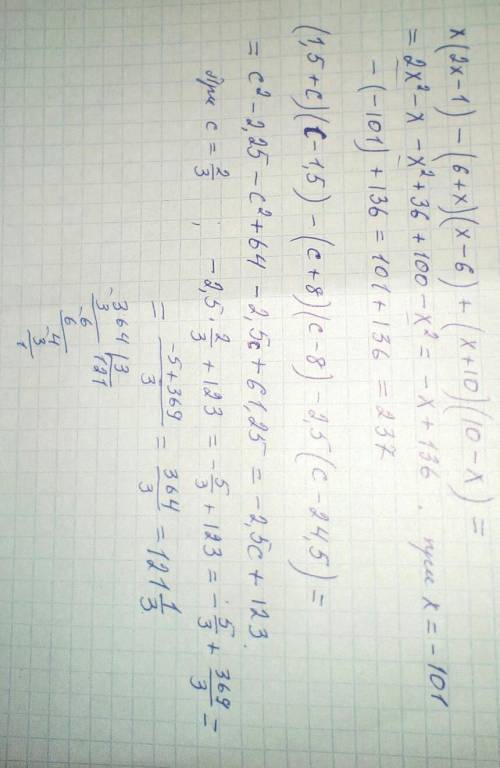 x(2x-1) - (6+x)(x-6) + (x+10)(10-x) =
= 2x² - x - x² + 36 + 100 - x² = -x + 136. при x = -101
-(-101) + 136 = 101 + 136 = 237
(1,5+c)(c-1,5) - (c+8)(c-8) - 2,5(c-24,5) =
= c² - 2,25 - c² + 64 - 2,5c + 61,25 = -2,5c + 123.
при c = 2/3, -2,5 2/3 + 123 = -5/3 + 123 = -5/3 + 369/3 =
= -5+369/3 = 364/3 = 121 1/3
364 | 3
-3 121
6
-6
4
-3
1